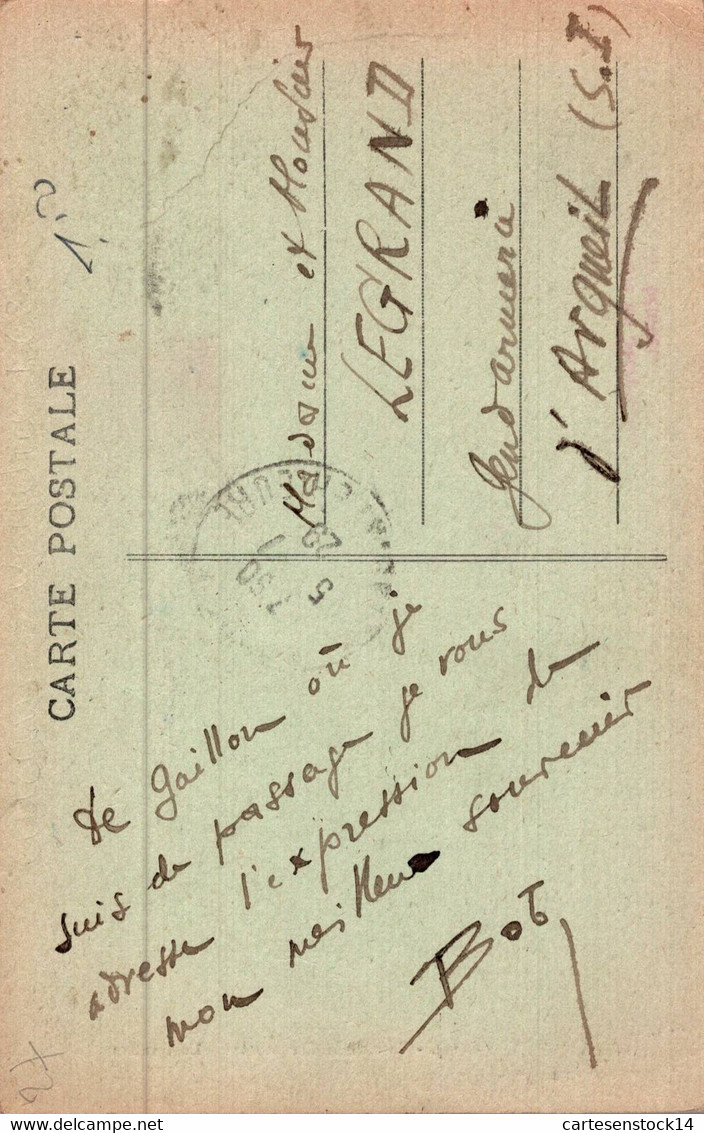 CARTE POSTALE
De Gaillon où je
suis de passage je vous
adresse l'expression de
mon meilleur souvenir
Bot
Madame et Monsieur
LEGRAND
Gendarmerie
d'Argueil (S.I)
delcampe.net
cartesenstock14